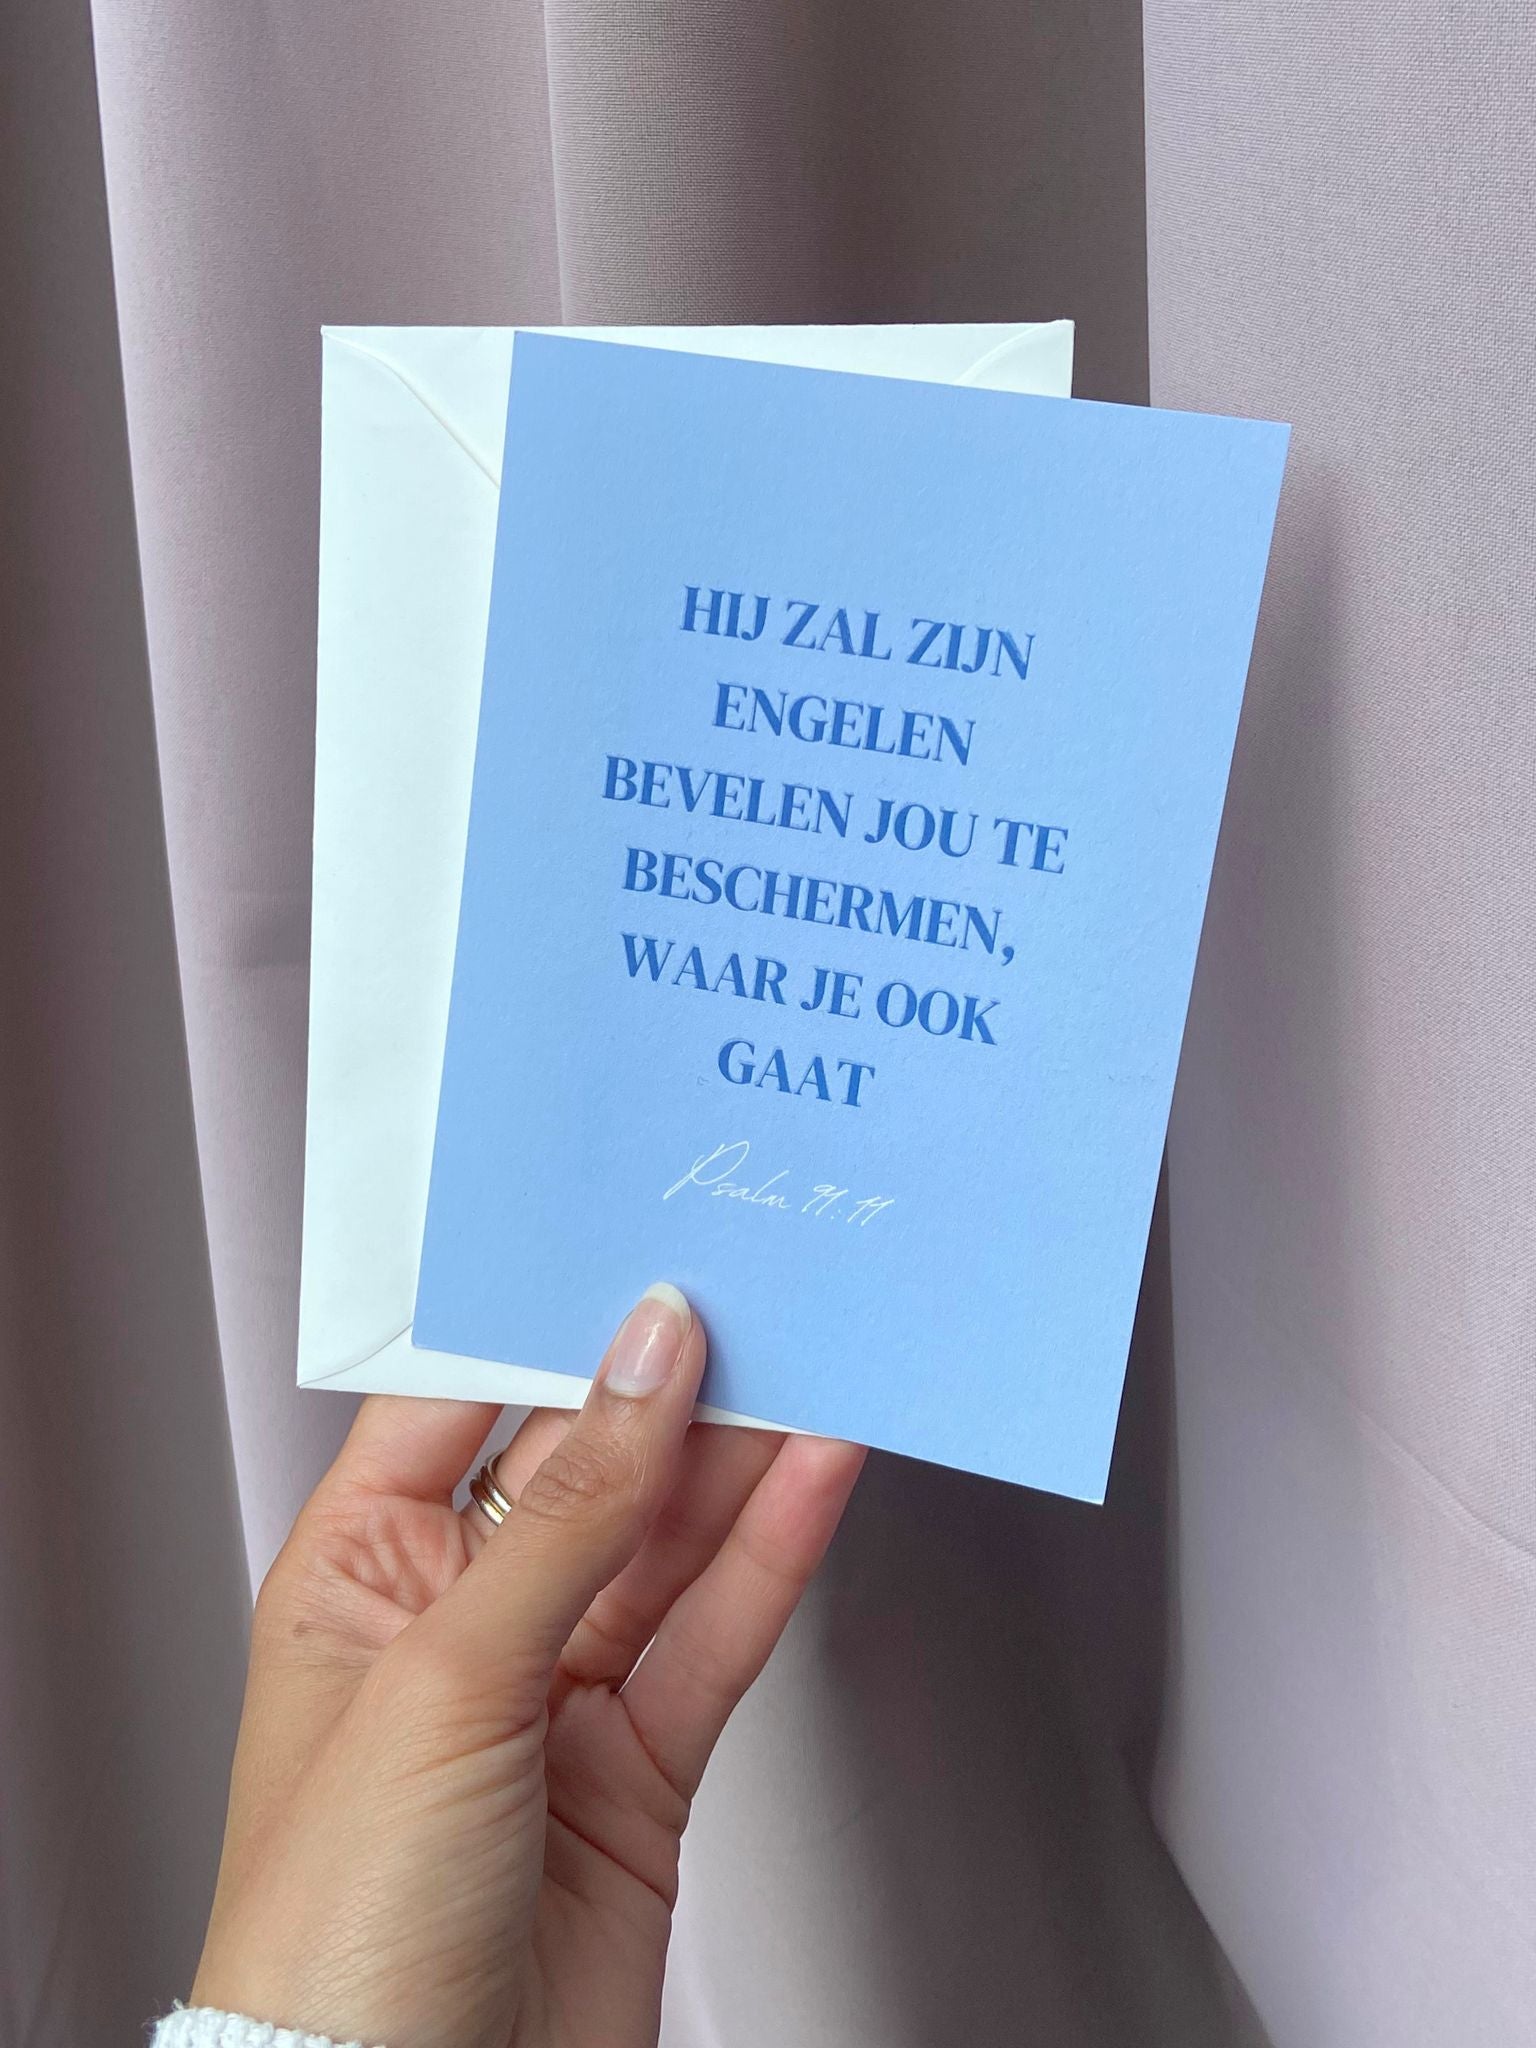 HIJ ZAL ZIJN
ENGELEN
BEVELEN JOU TE
BESCHERMEN,
WAAR JE OOK
GAAT
Psalm 91:11